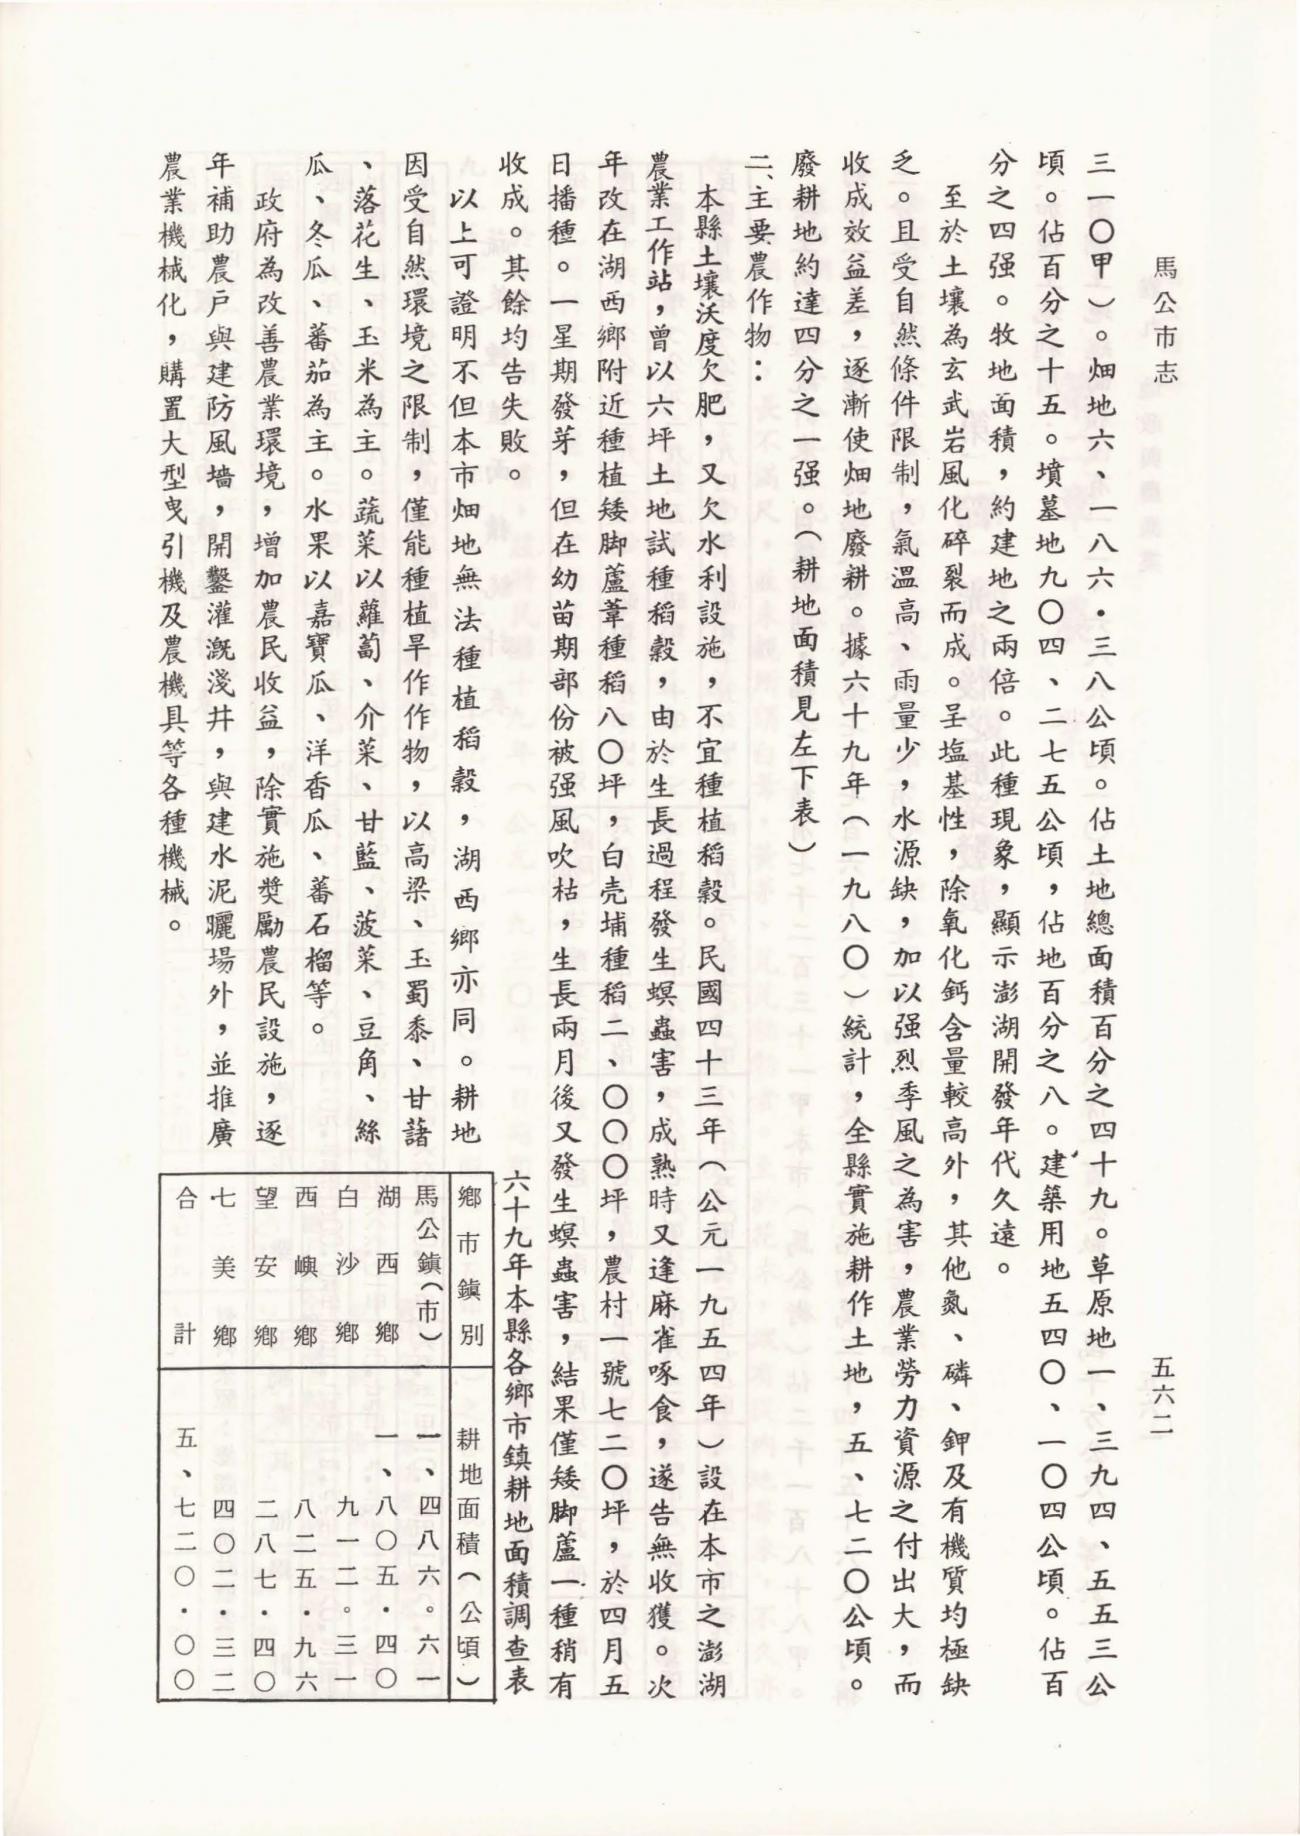 馬公市志
五六二
三一〇甲）。畑地六、一八六．三八公頃。佔土地總面積百分之四十九。草原地一、三九四、五五三公
頃。佔百分之十五。墳墓地九〇四、二七五公頃，佔地百分之八。建築用地五四〇、一〇四公頃。佔百
分之四强。牧地面積，約建地之兩倍。此種現象，顯示澎湖開發年代久遠。
至於土壤為玄武岩風化碎裂而成。呈塩基性，除氧化鈣含量較高外，其他氮、磷、鉀及有機質均極缺
乏。且受自然條件限制，氣溫高、雨量少，水源缺，加以强烈季風之為害，農業勞力資源之付出大，而
收成效益差，逐漸使畑地廢耕。據六十九年（一九八〇）統計，全縣實施耕作土地，五、七二〇公頃。
廢耕地約達四分之一强。（耕地面積見左下表）
二、主要農作物：
本縣土壤沃度欠肥，又欠水利設施，不宜種植稻穀。民國四十三年（公元一九五四年）設在本市之澎湖
農業工作站，曾以六坪土地試種稻穀，由於生長過程發生螟蟲害，成熟時又逢麻雀啄食，遂告無收獲。次
年改在湖西鄉附近種植矮脚蘆葦種稻八〇坪，白壳埔種稻二、〇〇〇坪，農村一號七二〇坪，於四月五
日播種。一星期發芽，但在幼苗期部份被强風吹枯，生長兩月後又發生螟蟲害，結果僅矮脚蘆一種稍有
收成。其餘均告失敗。
以上可證明不但本市畑地無法種植稻穀，湖西鄉亦同。耕地
因受自然環境之限制，僅能種植旱作作物，以高梁、玉蜀黍、甘藷
、落花生、玉米為主。蔬菜以蘿蔔、介菜、甘藍、菠菜、豆角、絲
瓜、冬瓜、蕃茄為主。水果以嘉寶瓜、洋香瓜、蕃石榴等。
政府為改善農業環境，增加農民收益，除實施獎勵農民設施，逐
年補助農戶與建防風墻，開鑿灌溉淺井，與建水泥曬場外，並推廣
農業機械化，購置大型曳引機及農機具等各種機械。
六十九年本縣各鄉市鎮耕地面積調查表
鄉市鎮別　耕地面積（公頃）
馬公鎮（市）　一、四八六。六一
湖西鄉　一、八〇五．四〇
白沙鄉　九一二。三一
西嶼鄉　八二五．九六
望安鄉　二八七．四〇
七美鄉　四〇二．三二
合計　五、七二〇．〇〇